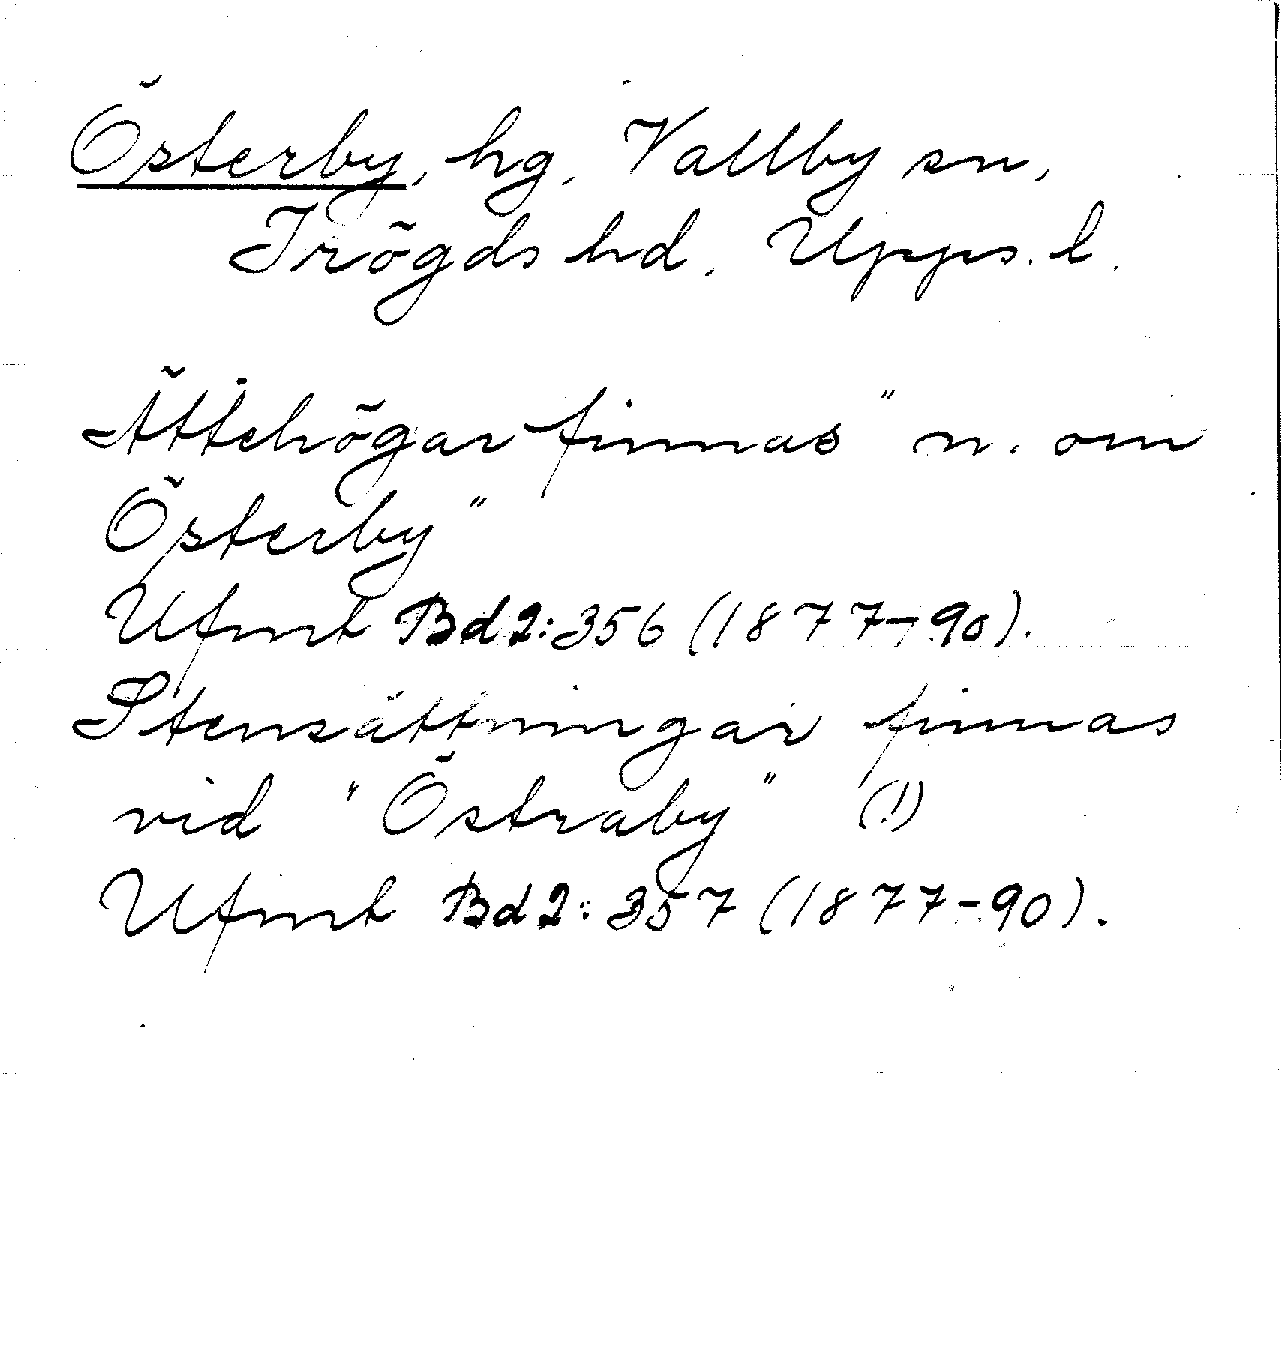 Österby, hg, Vallby sn,
Trögds hd. Upps. l.
Ättehögar finnas "n. om
Österby"
Ufmt Bd 2:356 (1877-90).
Stensättningar finnas
vid "Östraby" (!)
Ufmt Bd 2:357 (1877-90).